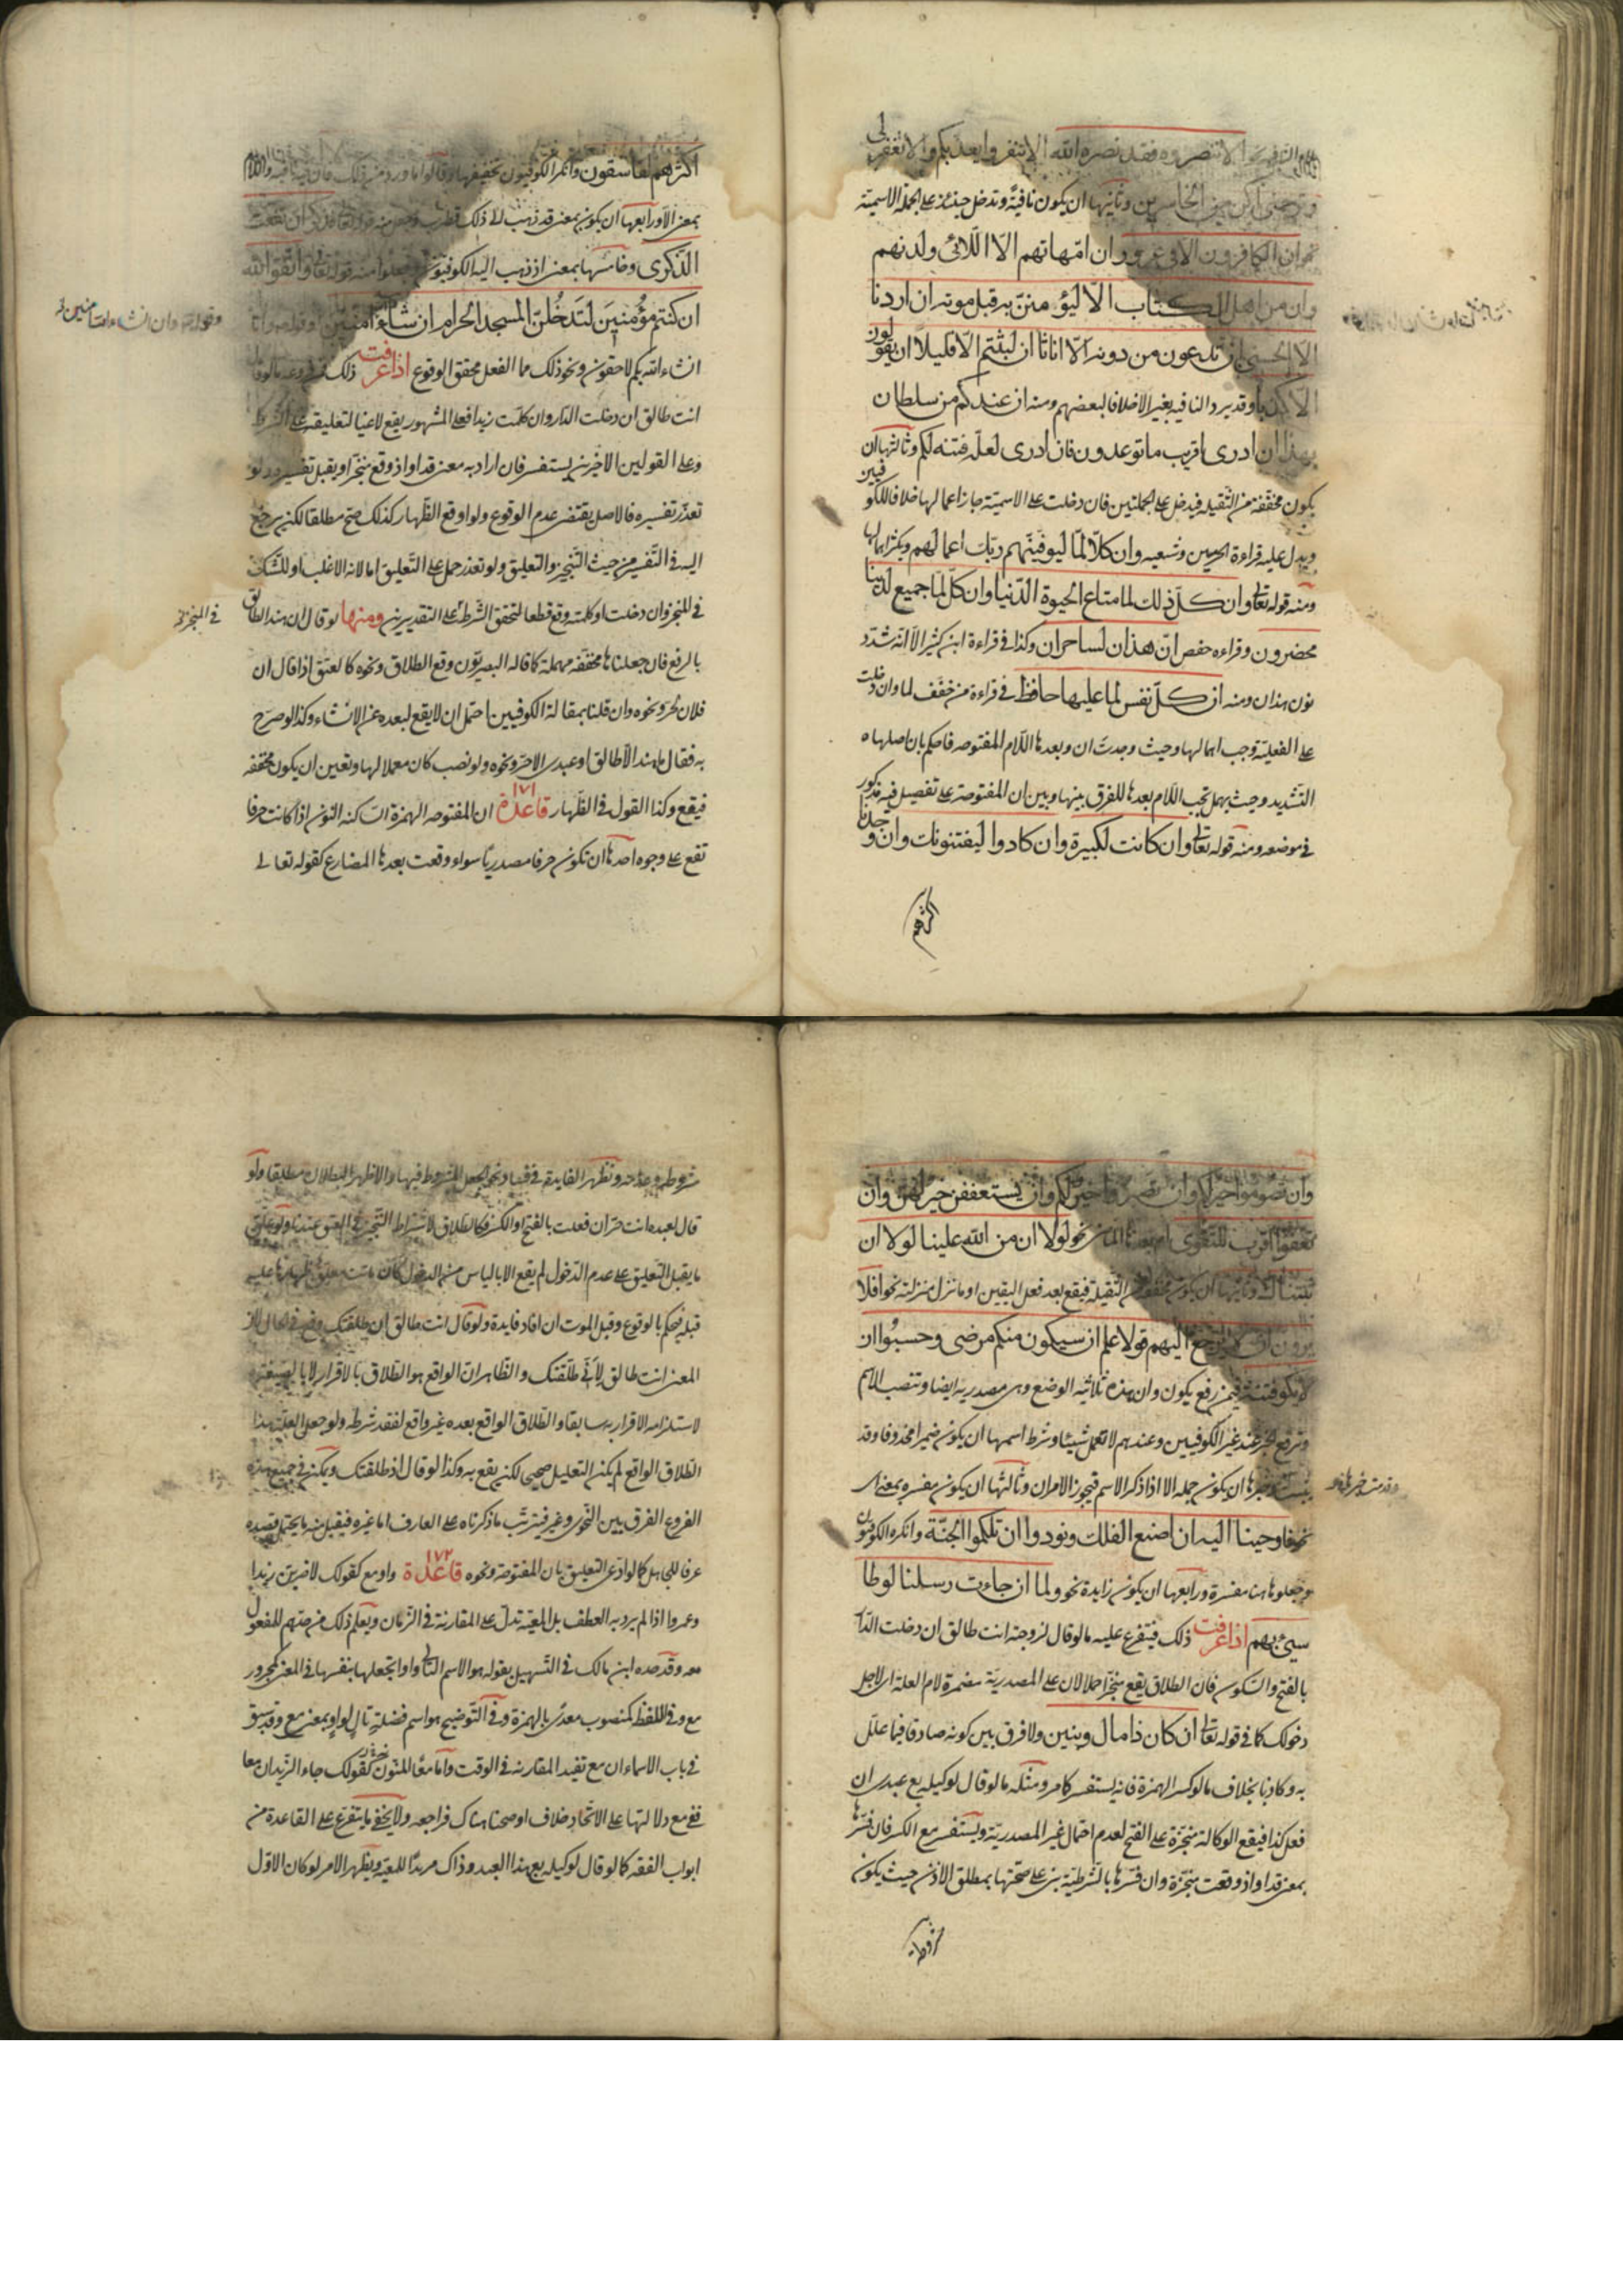 الا تنصروه فقد نصره الله الا تنفروا يعذبكم والا تغفر لى
وترحمنى اكن من الخاسرين وثانيها ان يكون نافية وتدخل حينئذ على الجملة الاسمية
نحو ان الكافرون الا فى غرور وان امهاتهم الا اللائى ولدنهم
وان من اهل الكتاب الا ليؤمنن به قبل موته ان اردنا
الا الحسنى ان تدعون من دونه الا اناثا ان لبثتم الا قليلا ان يقولون
الا كذبا وقد يرد النافيه بغير الا خلافا لبعضهم ومنه ان عندكم من سلطان
بهذا ان ادرى اقريب ما توعدون فان ادرى لعله فتنه لكم وثالثها ان
يكون مخففة من الثقيله فيدخل على الجملتين فان دخلت على الاسمية جاز اعمالها خلافا للكوفيين
ويدل عليه قراءة الحرميين وشعبه وان كلا لما ليوفينهم ربك اعمالهم ويكثر اهمالها
ومنه قوله تعالى وان كل ذلك لما متاع الحيوة الدنيا وان كل لما جميع لدينا
محضرون وقراءه حفص ان هذان لساحران وكذا فى قراءة ابن كثير الا انه شدد
نون هذان ومنه ان كل نفس لما عليها حافظ فى قراءة من خفف لما وان دخلت
على الفعلية وجب اهمالها وحيث وجدت ان وبعدها اللام المفتوحه فاحكم بان اصلها
التشديد وحيث يهمل تجب اللام بعدها للفرق بينها وبين ان المفتوحة على تفصيل فيه مذكور
فى موضعه ومنه قوله تعالى وان كانت لكبيرة وان كادوا ليفتنونك وان وجدنا
اكثرهم
اكثرهم لفاسقون وانكر الكوفيون تخفيفها وقالوا ما ورد من ذلك فان فيه نافيه واللام
بمعنى الا ورابعها ان يكون بمعنى قد ذهب الى ذلك قطرب ان نفعت
الذكرى وخامسها بمعنى اذ ذهب اليه الكوفيون وجعلوا منه قوله تعالى واتقوا الله
ان كنتم مؤمنين لتدخلن المسجد الحرام ان شاء الله آمنين
وقوله وان انشاء الله آمنين
انشاء الله بكم لاحقون ونحو ذلك مما الفعل محقق الوقوع اذا عرفت ذلك
انت طالق ان دخلت الدار وان كلمت زيدا فعلى المشهور يقع لاغيا لتعليقه على الشرط
وعلى القولين الاخرين يستفسر فان اراد به معنى قد او اذ وقع منجزا ويقبل تفسيره ولو
تعذر تفسيره فالاصل يقتضى عدم الوقوع ولو اوقع الظهار كذلك صح مطلقا لكن يرجع
اليه فى التفسير من حيث التنجيز والتعليق ولو تعذر حمل على التعليق اما لانه الاغلب او للشك
فى المنجز وان دخلت او كلمته وقع قطعا لتحقق الشرط على التقديرين ومنها لو قال ان هند الطالق
فى المنجز
بالرفع فان جعلناها مخففه مهملة كما قاله البصريون وقع الطلاق ونحوه كالعتق اذا قال ان
فلان لحر ونحوه وان قلنا بمقالة الكوفيين احتمل ان لا يقع لبعده عن الانشاء وكذا لو صرح
به فقال ما هند الا طالق او عبدى الا حر ونحوه ولو نصب كان معملا لها وتعين ان يكون مخففه
فيقع وكذا القول فى الظهار قاعدة ١٧١ ان المفتوحه الهمزة الساكنه النون اذا كانت حرفا
تقع على وجوه احدها ان تكون حرفا مصدريا سواء وقعت بعدها المضارع كقوله تعالى
وان تصوموا خير لكم وان تصبروا خير لكم وان يستعففن خير لهن وان
تعفوا اقرب للتقوى نحو لولا ان من الله علينا لولا ان
ثبتناك وثانيها ان يكون مخففة من الثقيلة فيقع بعد فعل اليقين او ما نزل منزلته نحو افلا
يرون ان لا يرجع اليهم قولا علم ان سيكون منكم مرضى وحسبوا ان
لا تكون فتنة فيمن رفع يكون وان هذه ثلاثيه الوضع وهى مصدريه ايضا وتنصب الاسم
وترفع الخبر عند غير الكوفيين وعندهم لا تعمل شيئا وشرط اسمها ان يكون ضميرا محذوفا وقد
يثبت وخبرها ان يكون جمله الا اذا ذكر الاسم فيجوز الامران وثالثها ان يكون مفسره بمعنى اى
نحو فاوحينا اليه ان اصنع الفلك ونودوا ان تلكموا الجنة وانكره الكوفيون
وجعلوها هنا مفسرة ورابعها ان يكون زايدة نحو ولما ان جاءت رسلنا لوطا
سيئ بهم اذا عرفت ذلك فيتفرع عليه ما لو قال لزوجته انت طالق ان دخلت الدار
بالفتح والسكون فان الطلاق يقع منجزا حملا لان على المصدرية مضمرة لام العلة اى لاجل
دخولك كما فى قوله تعالى ان كان ذا مال وبنين ولا فرق بين كونه صادقا فيما علل
به وكاذبا بخلاف ما لو كسر الهمزة فانه يستفسر كما مر ومثله ما لو قال لوكيله بع عبدى ان
فعل كذا فيقع الوكالة منجزة على الفتح لعدم احتمال غير المصدرية ويستفسر مع الكسر فان فسرها
بمعنى قد او اذ وقعت منجزة وان فسرها بالشرطية بنى على صحتها بمطلق الاذن حيث يكون
مشروطه
مشروطه وعدمه وتظهر الفايدة فى نحو الجعل المشروط فيها والاظهر البطلان مطلقا ولو
قال لعبده انت حر ان فعلت بالفتح او الكسر فكالطلاق لاشتراط التنجيز فى العتق عندنا ولو علق
ما يقبل التعليق على عدم الدخول لم يقع الا بالياس من الدخول كان ماتت
قبله فيحكم بالوقوع وقبل الموت ان افاد فايدة ولو قال انت طالق ان طلقتك وقع فى الحال لان
المعنى انت طالق لانى طلقتك والظاهر ان الواقع هو الطلاق بالاقرار لا بالصيغة
لاستلزامه الاقرار به سابقا والطلاق الواقع بعده غير واقع لفقد شرطه ولو جعل العلة هذا
الطلاق الواقع لم يكن التعليل صحيحا لكن يقع به وكذا لو قال اذ طلقتك ويمكن فى جميع هذه
الفروع الفرق بين النحوى وغيره فيترتب ما ذكرناه على العارف اما غيره فيقبل منه ما يحتمل قصده
عرفا للجاهل كما لو ادعى التعليق بان المفتوحة ونحوه قاعدة ١٧٢ واو مع كقولك لاضربن زيدا
وعمروا اذا لم يرد به العطف بل المعية تدل على المقارنة فى الزمان ويعلم ذلك من حدهم للمفعول
معه وقد حده ابن مالك فى التسهيل بقوله هو الاسم التالى واوا تجعلها بنفسها فى المعنى كمجرور
مع وفى اللفظ كمنصوب معدى بالهمزة وفى التوضيح هو اسم فضلة تال لواو بمعنى مع وقد سبق
فى باب الاسماء ان مع تفيد المقارنه فى الوقت واما معا المنون نحو كقولك جاء الزيدان معا
ففى مع دلالتها على الاتحاد خلاف اوضحناه هناك فراجعه ولا يخفى ما يتفرع على القاعدة من
ابواب الفقه كما لو قال لوكيله بع هذا العبد وذاك مريدا للمعية ويظهر الامر لو كان الاول